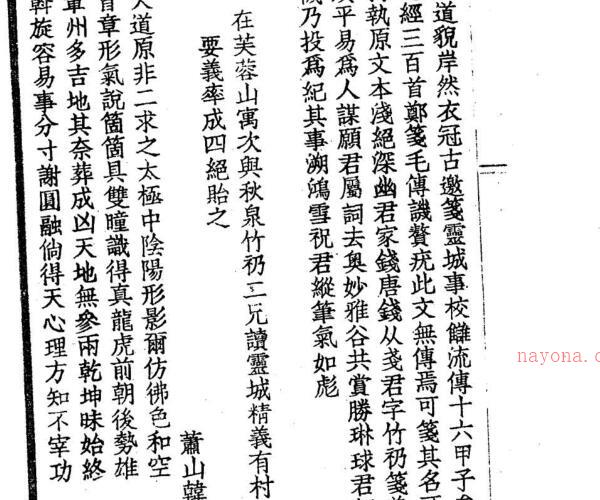 道貌岸然衣冠古邀箋靈城事校讎流傳十六甲子
經三百首鄭箋毛傳譏贅疣此文無傳焉可箋其名
執原文本淺絕深幽君家錢唐錢从戔君字竹礽箋
平易爲人謀願君屬詞去奧妙雅谷共賞勝琳球君
乃投爲紀其事溯鴻雪祝君縱筆氣如彪
在芙蓉山寓次與秋泉竹礽二兄讀靈城精義有村
要義率成四絕貽之
蕭山韓
大道原非二求之太極中陰陽形影爾仿彿色和空
首章形氣說箇箇具雙瞳識得真龍虎前朝後勢雄
軍州多吉地其奈葬成凶天地無參兩乾坤昧始終
斡旋容易事分寸謝圓融倘得天心理方知不宰功
nayona.c